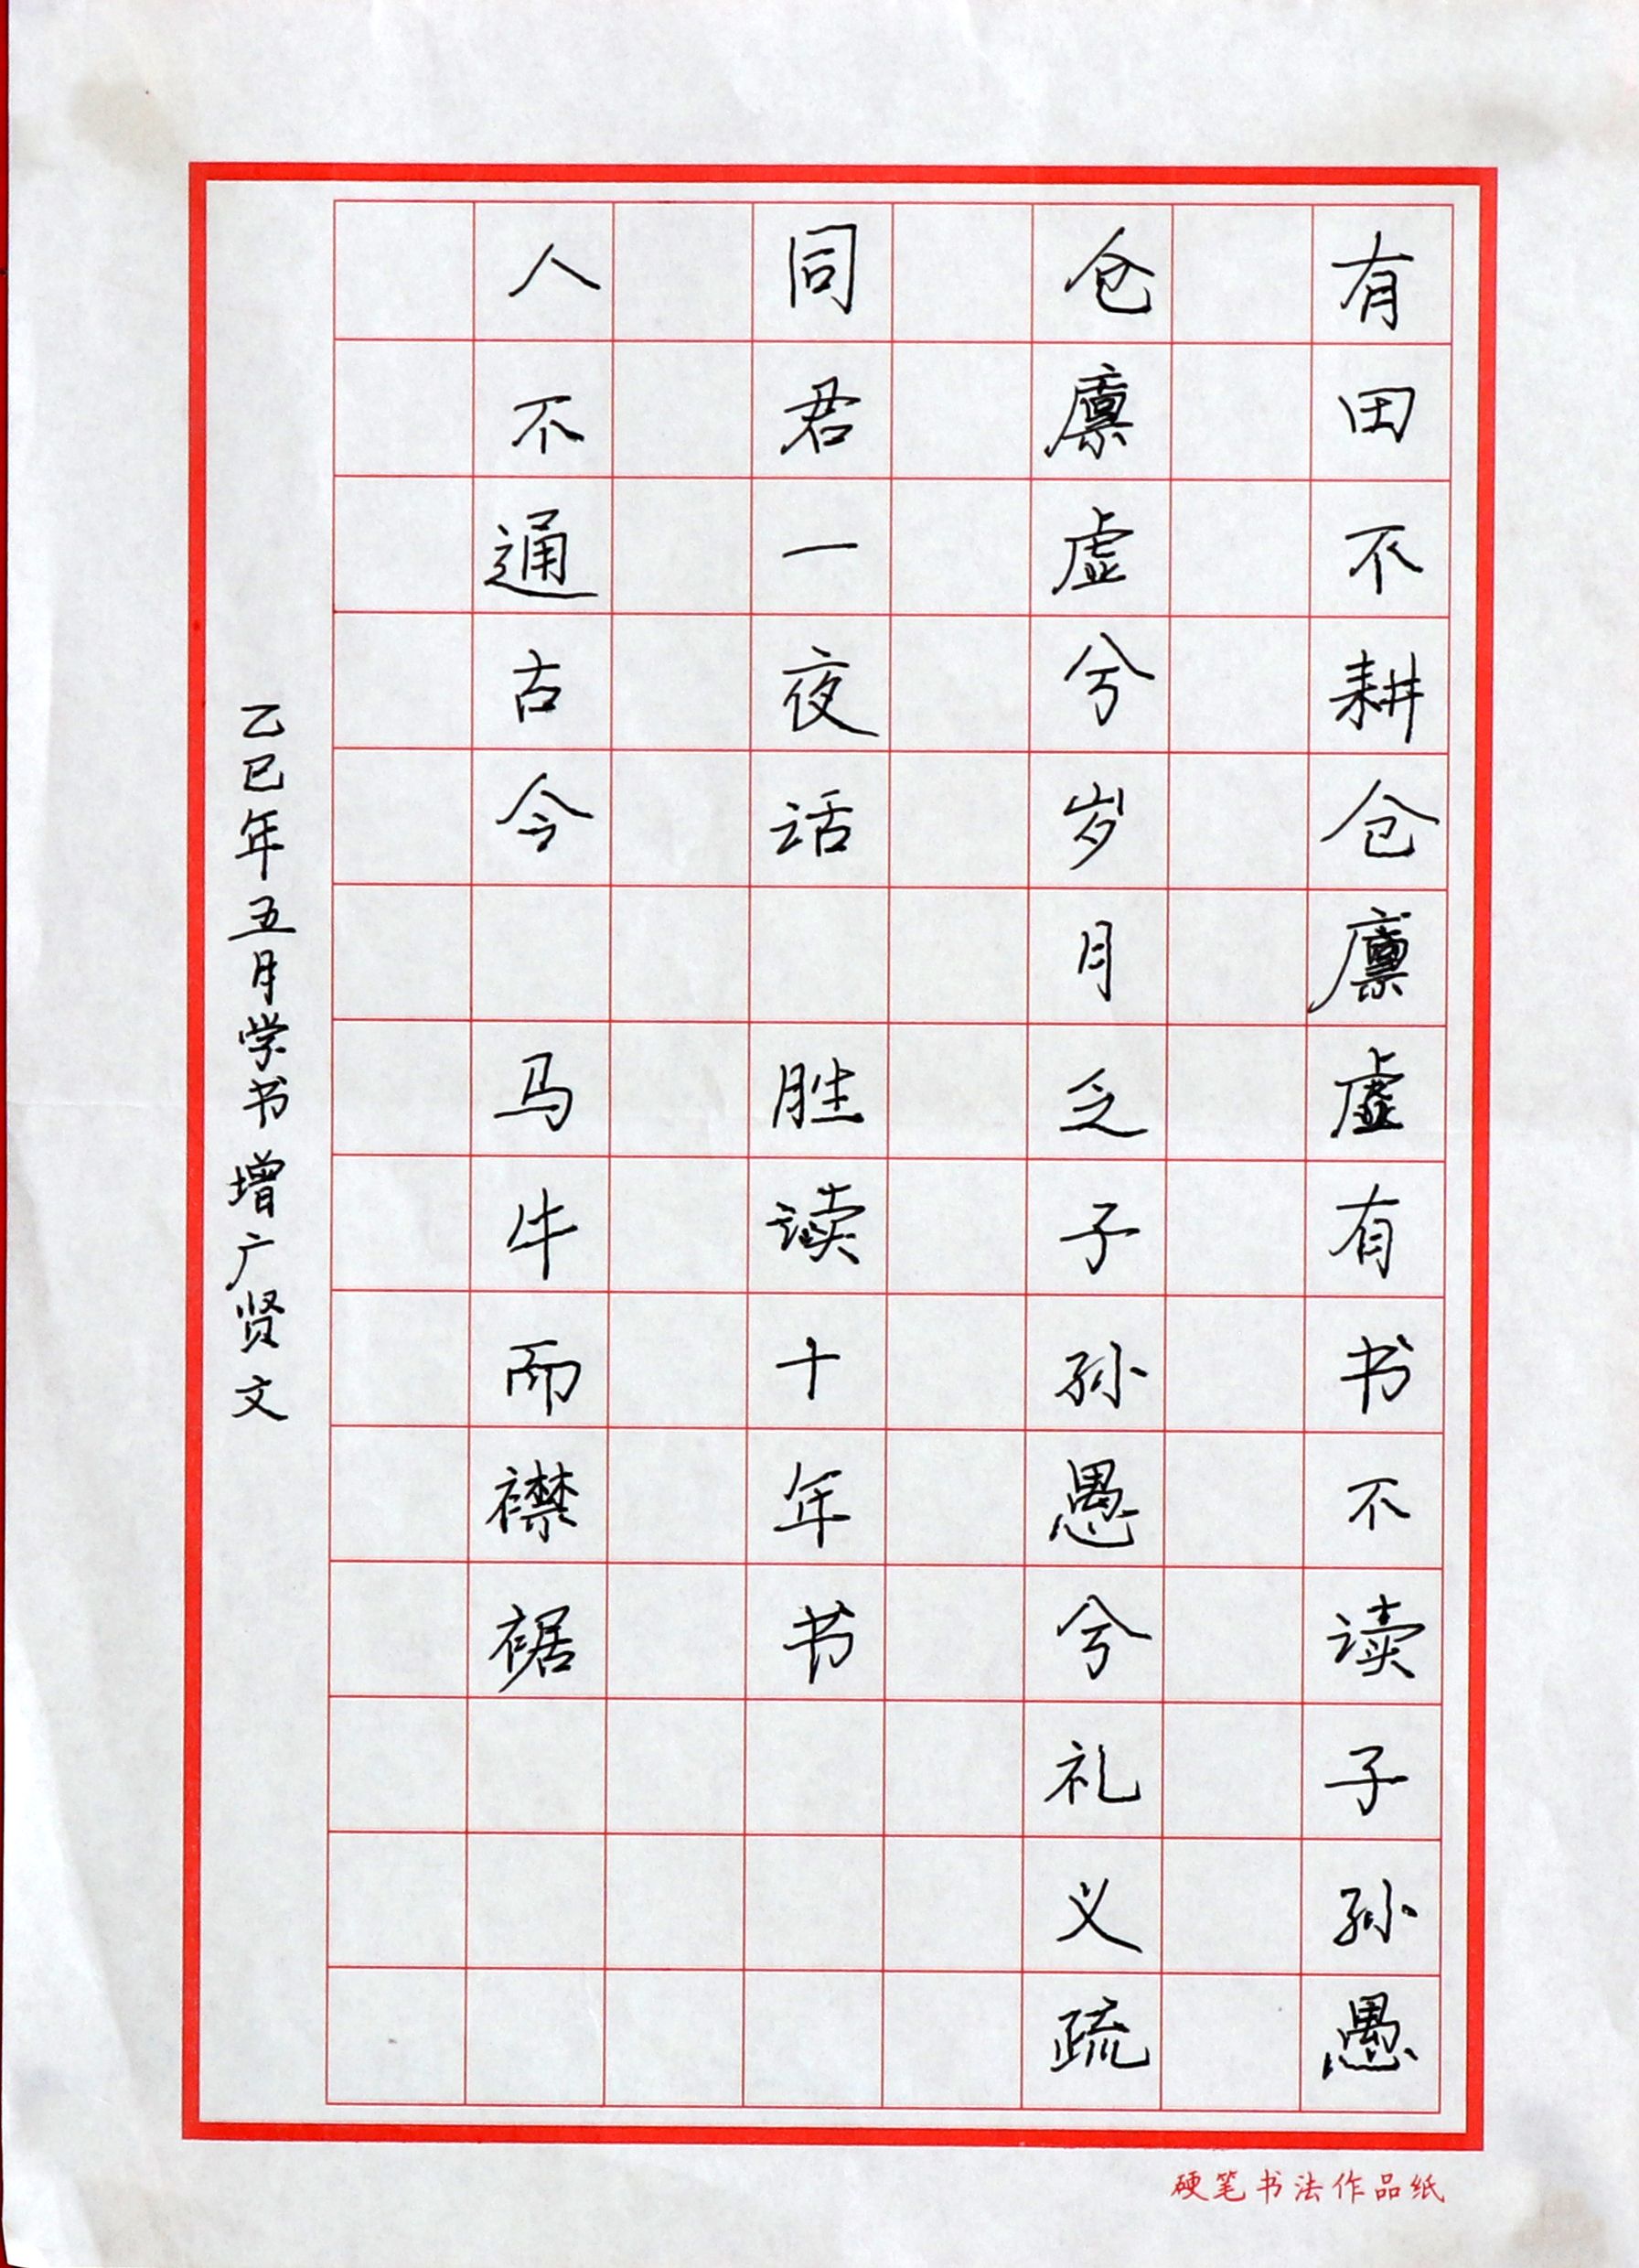 有田不耕仓廪虚有书不读子孙愚
仓廪虚兮岁月乏子孙愚兮礼义疏
同君一夜话 胜读十年书
人不通古今 马牛而襟裾
乙巳年五月学书增广贤文
硬笔书法作品纸